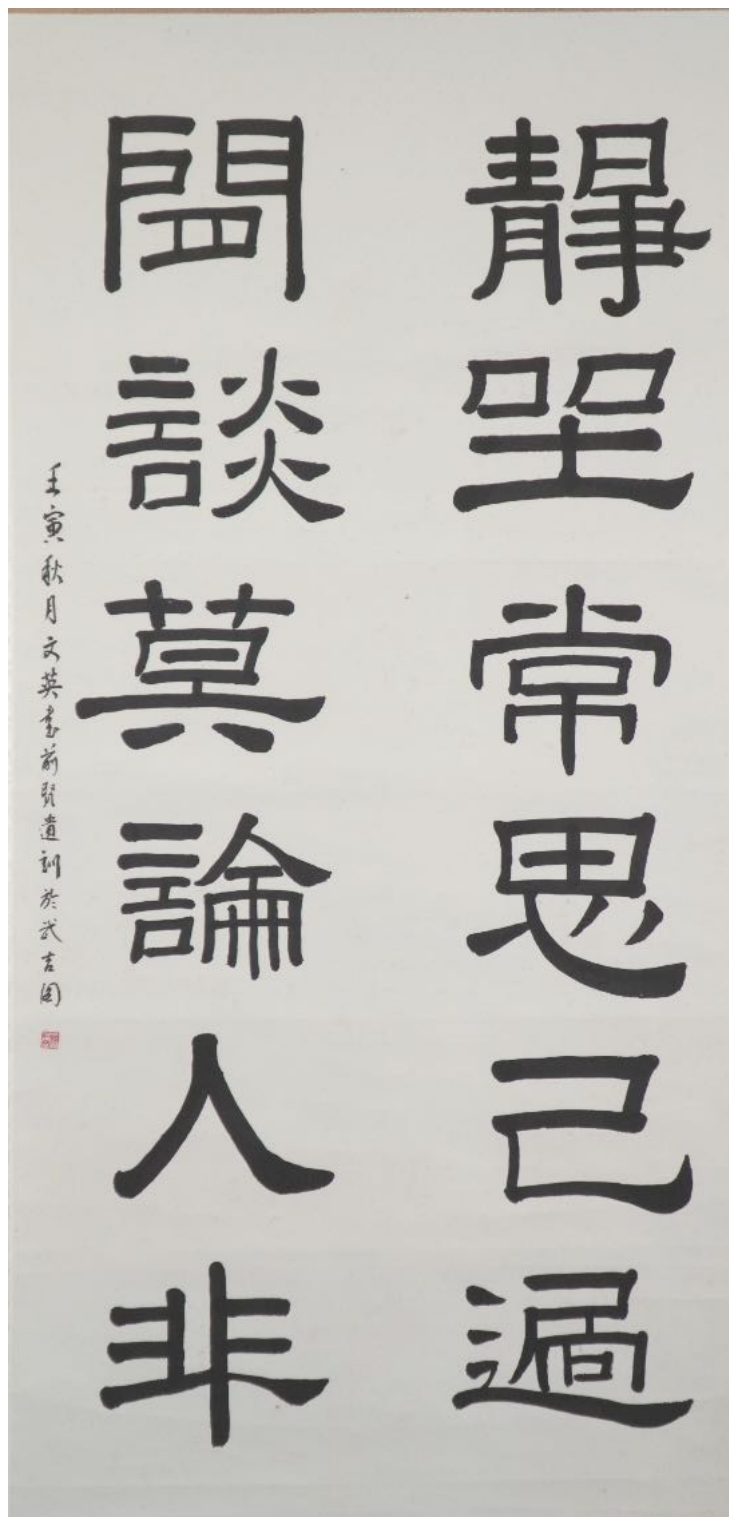 靜坐常思己過
閒談莫論人非
壬寅秋月文英書前賢遺訓於武吉